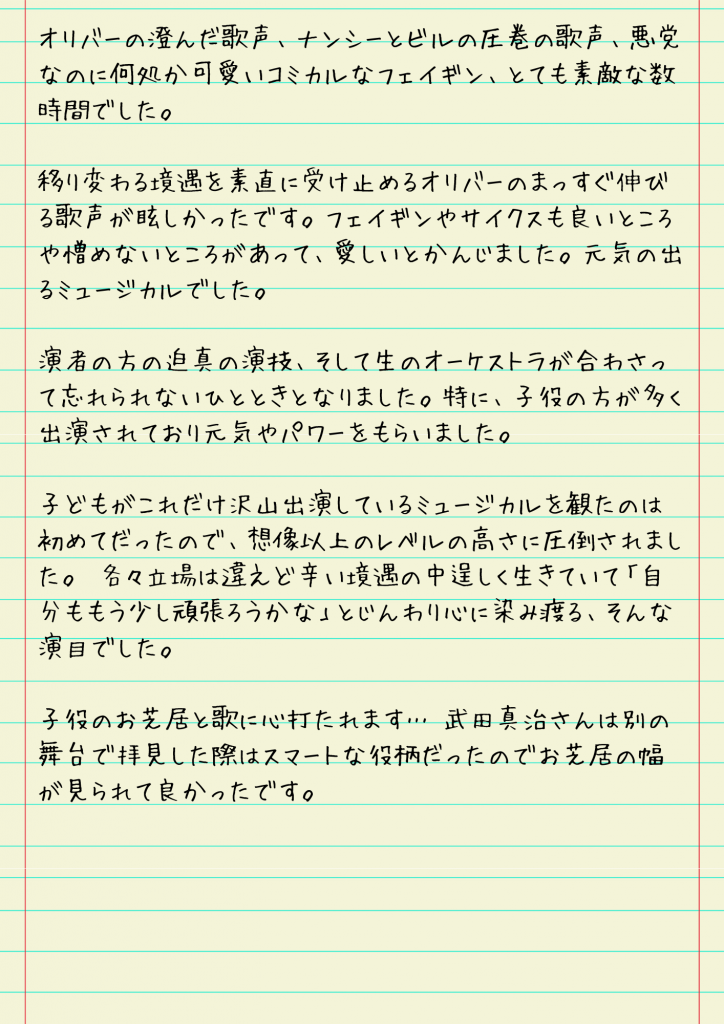 オリバーの澄んだ歌声、ナンシーとビルの圧巻の歌声、悪党
なのに何処か可愛いコミカルなフェイギン、とても素敵な数
時間でした。
移り変わる境遇を素直に受け止めるオリバーのまっすぐ伸び
る歌声が眩しかったです。フェイギンやサイクスも良いところ
や憎めないところがあって、愛しいとかんじました。元気の出
るミュージカルでした。
演者の方の迫真の演技、そして生のオーケストラが合わさっ
て忘れられないひとときとなりました。特に、子役の方が多く
出演されており元気やパワーをもらいました。
子どもがこれだけ沢山出演しているミュージカルを観たのは
初めてだったので、想像以上のレベルの高さに圧倒されまし
た。 各々立場は違えど辛い境遇の中逞しく生きていて「自
分ももう少し頑張ろうかな」とじんわり心に染み渡る、そんな
演目でした。
子役のお芝居と歌に心打たれます… 武田真治さんは別の
舞台で拝見した際はスマートな役柄だったのでお芝居の幅
が見られて良かったです。